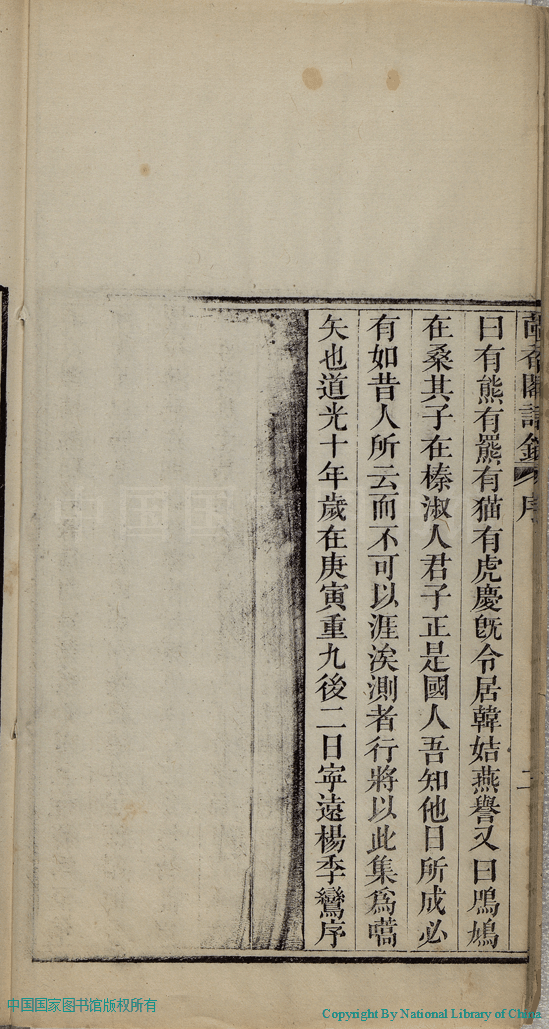 閣詩鈔 序 二
曰有熊有羆有猫有虎慶旣令居韓姞燕譽又曰鳲鳩
在桑其子在榛淑人君子正是國人吾知他日所成必
有如昔人所云而不可以涯涘測者行將以此集爲嚆
矢也道光十年歲在庚寅重九後二日寧遠楊季鸞序
中国国家图书馆版权所有
Copyright By National Library of China